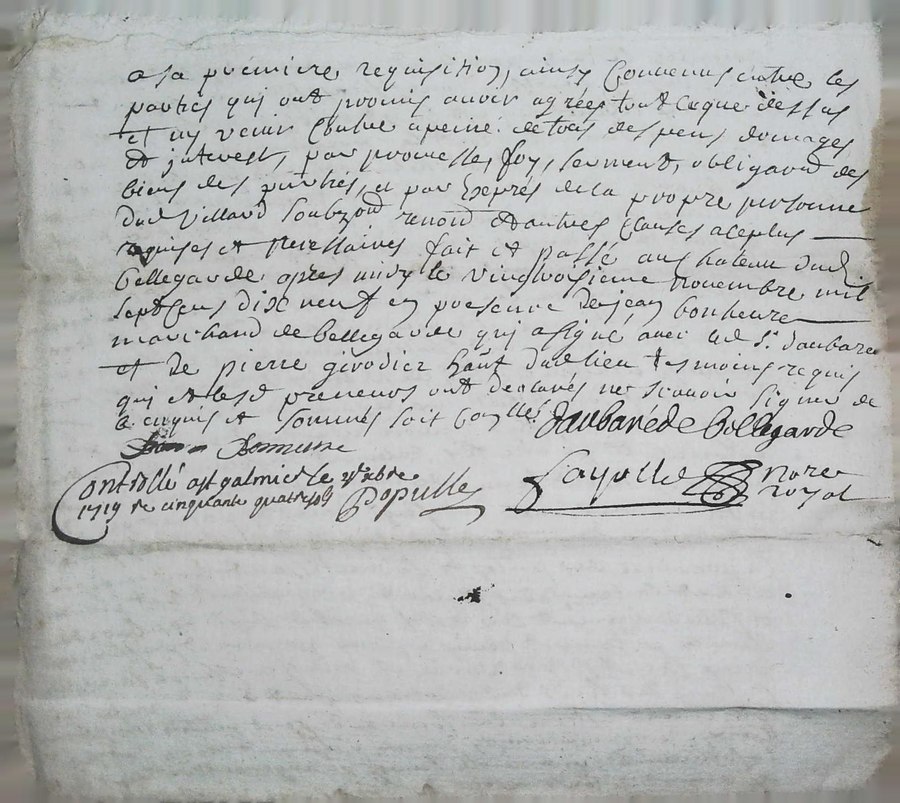 a sa premiere requisition, ainsy Convenus entre les
parties qui ont promis avoir agrées tout ce que dessus
et ny venir Contre a peine de tous despens domages
et interest, par promesses, foy, serment, obligaon des
biens des parties, et par Exprés de la propre personne
dud Villard soubz renon et autres Clauses a ce plus
requises et necessaires fait et passé au chateau dud
bellegarde apres midy le vingtroisieme novembre mil
sept Cens dix neuf en presence de jean bonheure
marchand de bellegarde qui a signé avec led sr daubarede
et de pierre girodier dud lieu tesmoins requis
qui et lesd preneurs ont declarés ne scavoir signer de
ce enquis et sommés soit Daubaréde Bellegarde
Bonneure
Controllé a st galmier le xbre
1719 re cinquante quatre sols Populle Fayolle Nore
royal